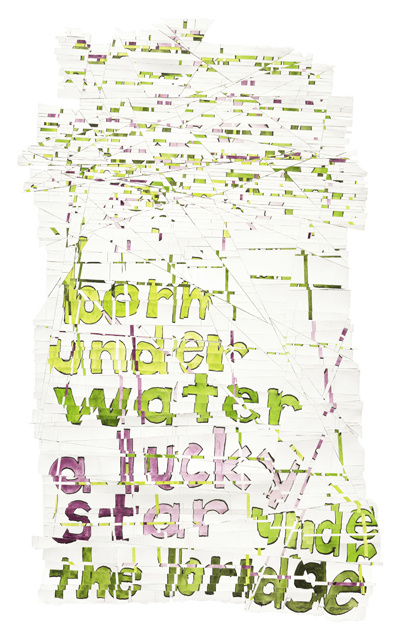 born
under
water
a lucky
star under
the bridge